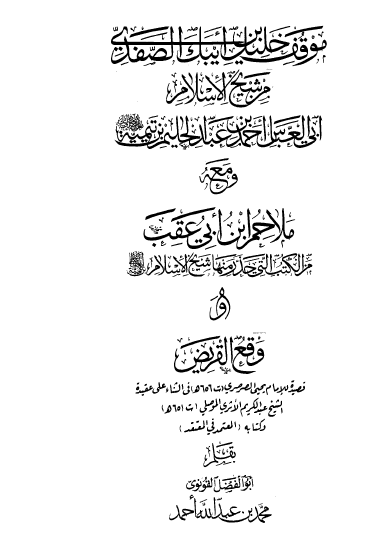 موقف خليل بن أيبك الصفدي
من شيخ الإسلام
أبي العباس أحمد بن عبد الحليم بن تيمية
ومعه
ملاحم ابن أبي عقب
من الكتب التي حذر منها شيخ الإسلام
أو
وقع القريض
قصيدة للإمام يحيى الصرصري (ت ٦٥٦ هـ) في الثناء على عقيدة
الشيخ عبد الكريم الأثري الموصلي (ت ٦٥١ هـ)
وكتابه (المعتمد في المعتقد)
بقلم
أبو الفضل القونوي
محمد بن عبد الله أحمد